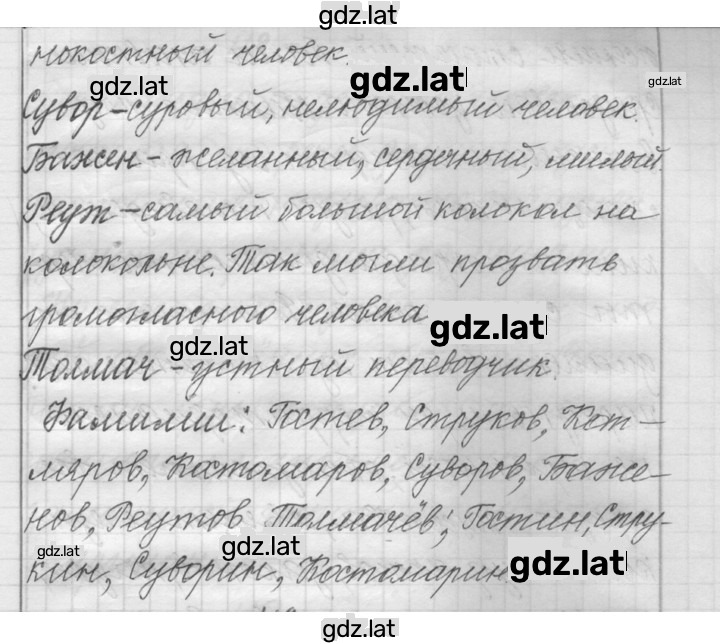 gdz.lat
нокостный человек.
gdz.lat gdz.lat gdz.lat
Сувор-суровый, нелюдимый человек.
Бажен - желанный, сердечный, милый.
Реут-самый большой колокол на
колокольне. Так могли прозвать
громогласного человека
gdz.lat
gdz.lat
Толмач - устный переводчик.
Фамилии: Гостев, Струков, Кот-
ляров, Костомаров, Суворов, Баже-
нов, Реутов Толмачёв; Гостин, Стру-
gdz.lat gdz.lat gdz.lat
кин, Суворин, Костомарин
gdz.lat